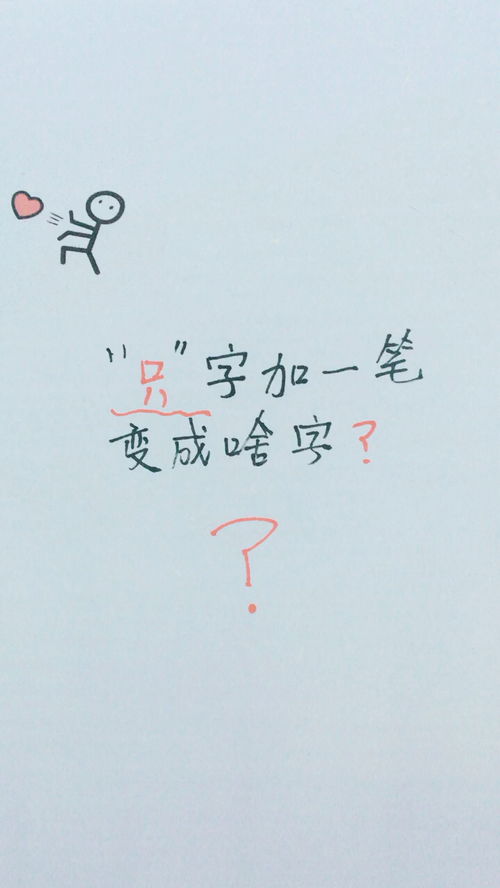 “只”字加一笔
变成啥字？
？